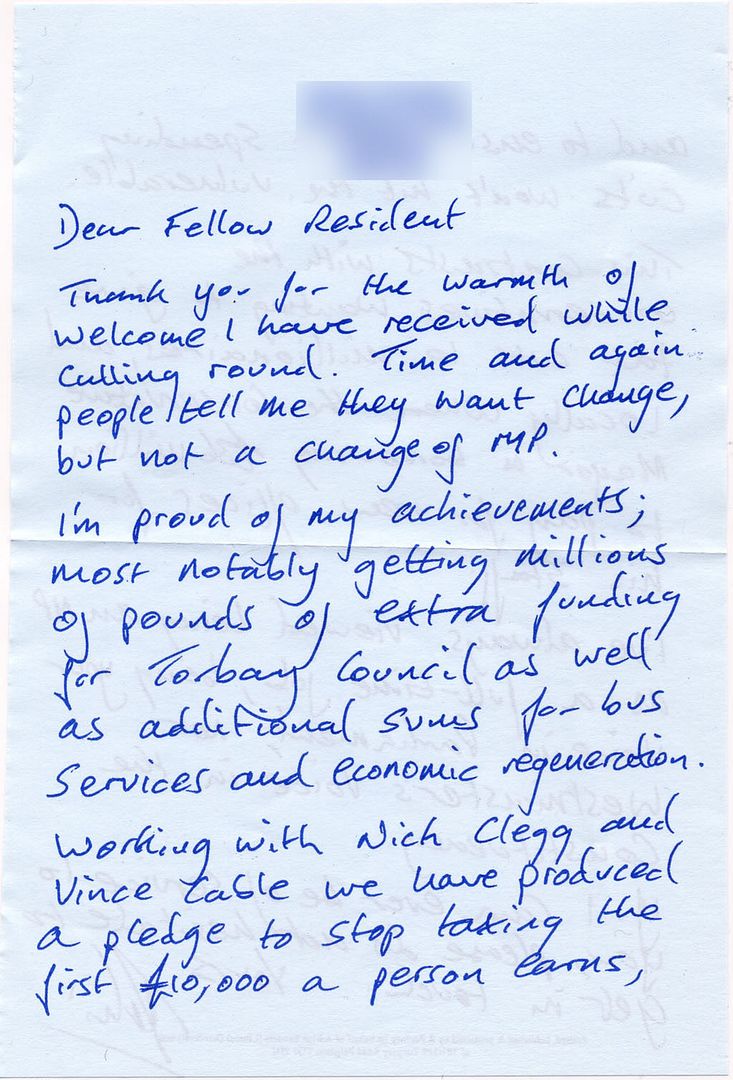 Dear Fellow Resident
Thank you for the warmth of
welcome I have received while
calling round. Time and again
people tell me they want change,
but not a change of MP.
I'm proud of my achievements;
most notably getting millions
of pounds of extra funding
for Torbay Council as well
as additional sums for bus
services and economic regeneration.
Working with Nick Clegg and
Vince Cable we have produced
a pledge to stop taxing the
first £10,000 a person earns,